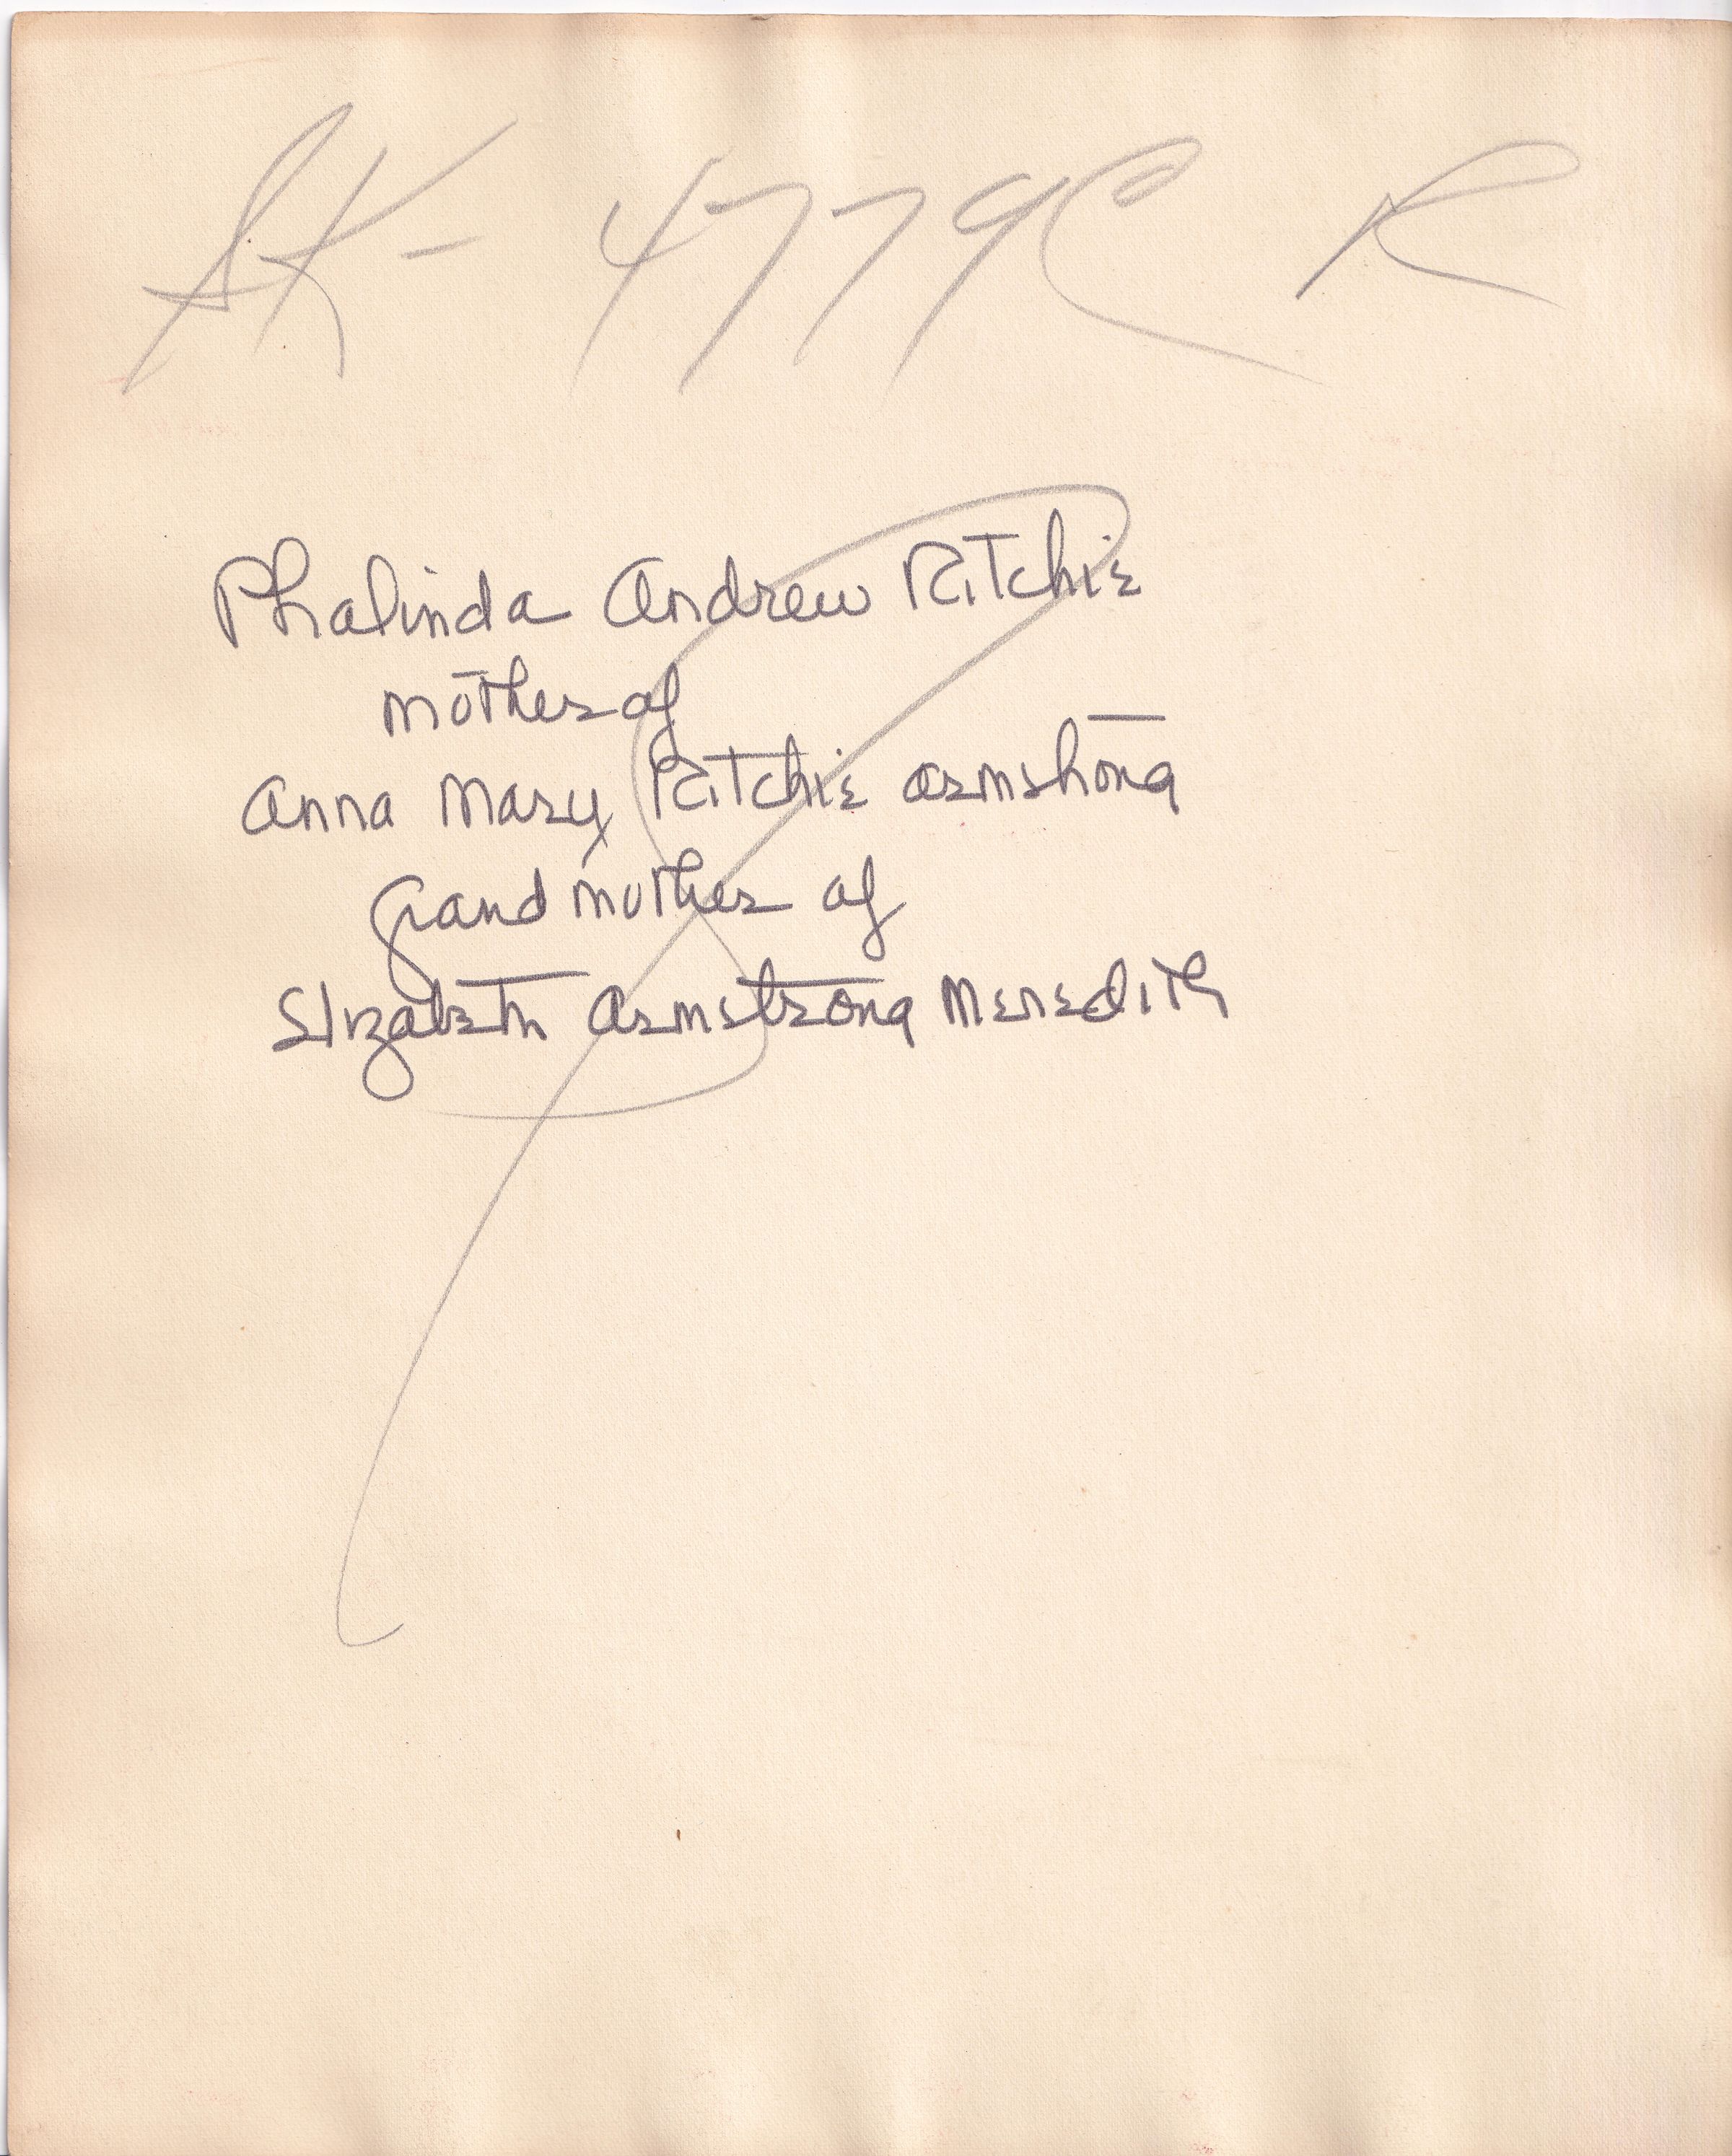 SK- 4779C R
Phalinda Andrew Ritchie
mother of
Anna Mary Ritchie Armstrong
Grand mother of
Elizabeth Armstrong Meredith